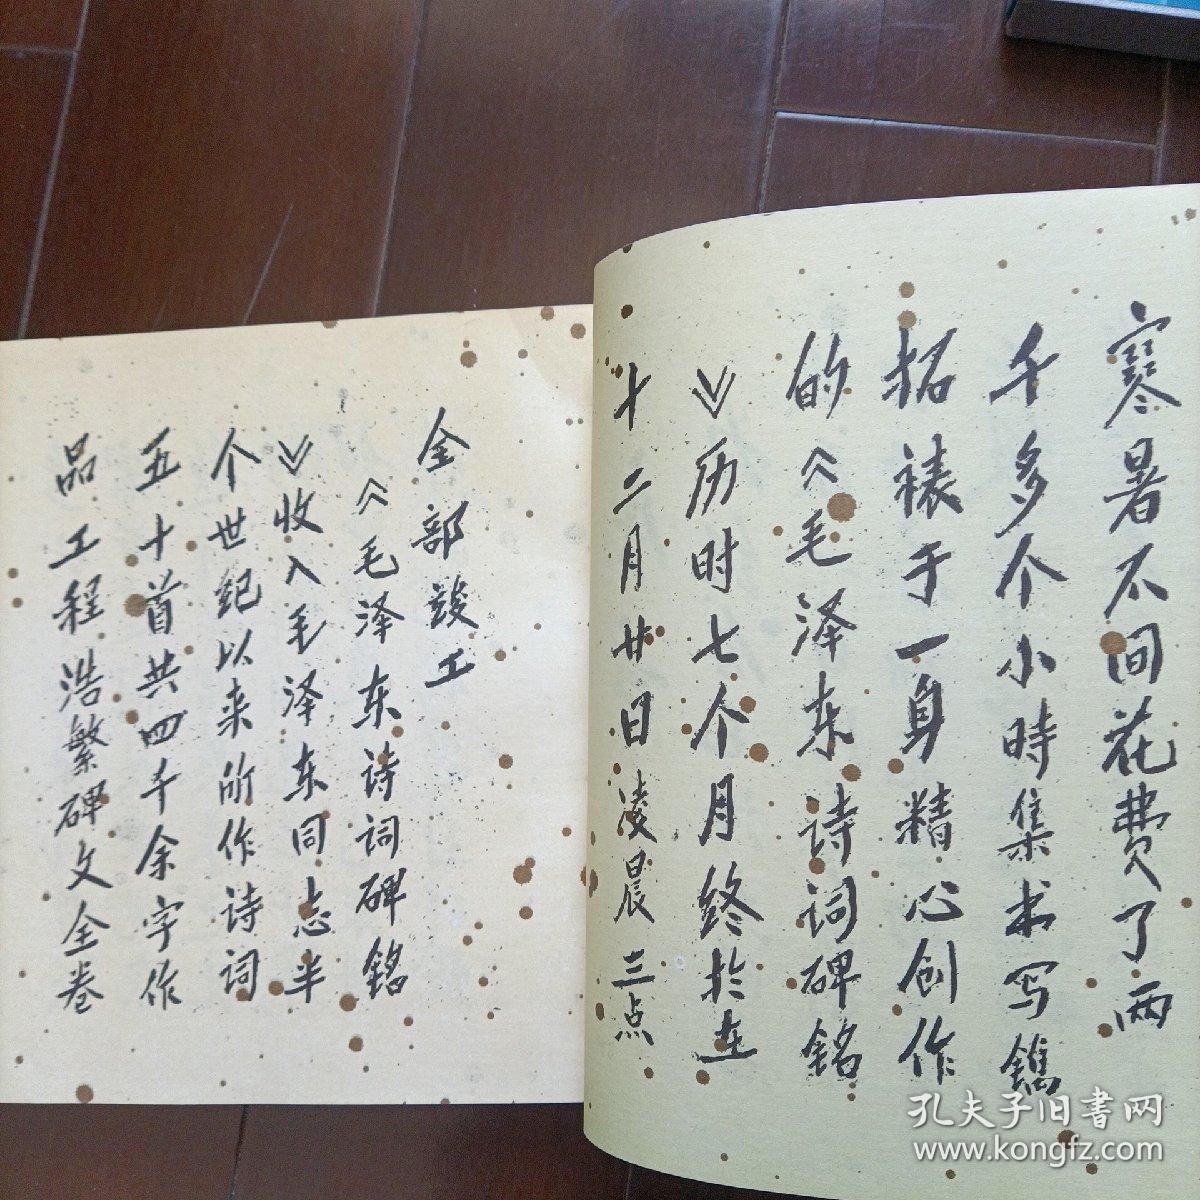 寒暑不间花费了两
千多个小時集书写鐫
拓裱于一身精心创作
的《毛泽东诗词碑銘
》历时七个月终於在
十二月廿日凌晨三点
全部竣工
《毛泽东诗词碑銘
》收入毛泽东同志半
个世纪以来所作诗词
五十首共四千余字作
品工程浩繁碑文全卷
孔夫子旧書网
www.kongfz.com